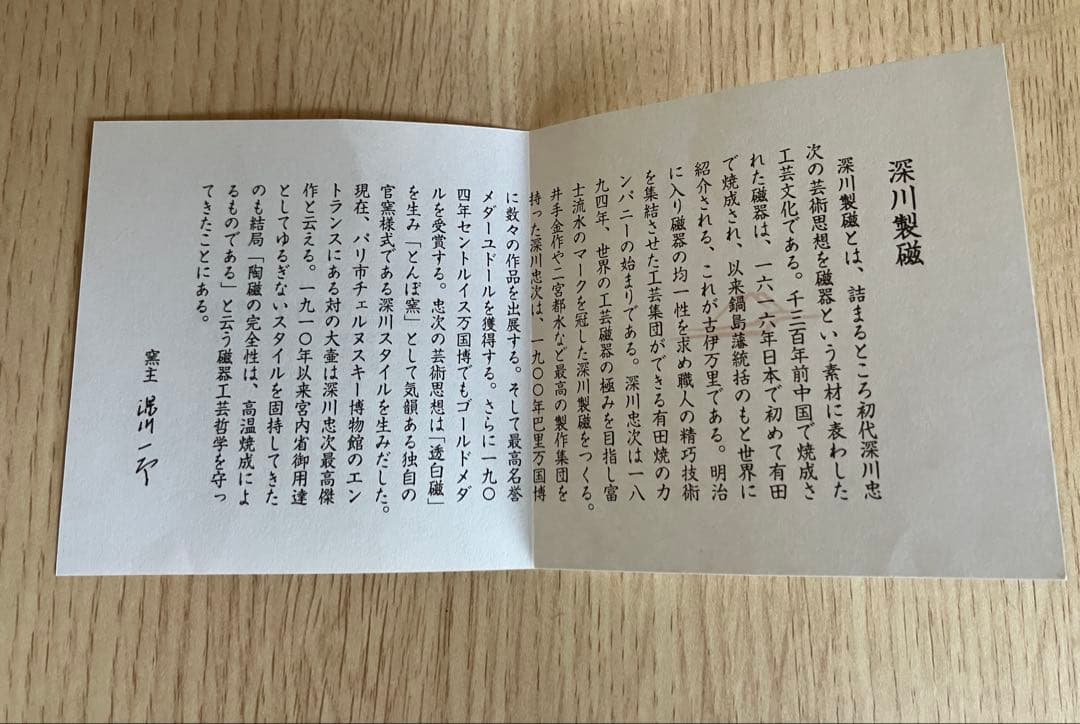 深川製磁
深川製磁とは、詰まるところ初代深川忠
次の芸術思想を磁器という素材に表わした
工芸文化である。千三百年前中国で焼成さ
れた磁器は、一六一六年日本で初めて有田
で焼成され、以来鍋島藩統括のもと世界に
紹介される、これが古伊万里である。明治
に入り磁器の均一性を求め職人の精巧技術
を集結させた工芸集団ができる有田焼のカ
ンパニーの始まりである。深川忠次は一八
九四年、世界の工芸磁器の極みを目指し富
士流水のマークを冠した深川製磁をつくる。
井手金作や二宮都水など最高の製作集団を
持った深川忠次は、一九〇〇年巴里万国博
に数々の作品を出展する。そして最高名誉
メダーユドールを獲得する。さらに一九〇
四年セントルイス万国博でもゴールドメダ
ルを受賞する。忠次の芸術思想は「透白磁」
を生み「とんぼ窯」として気韻ある独自の
官窯様式である深川スタイルを生みだした。
現在、パリ市チェルヌスキー博物館のエン
トランスにある対の大壷は深川忠次最高傑
作と云える。一九一〇年以来宮内省御用達
としてゆるぎないスタイルを固持してきた
のも結局「陶磁の完全性は、高温焼成によ
るものである」と云う磁器工芸哲学を守っ
てきたことにある。
窯主 深川一郎